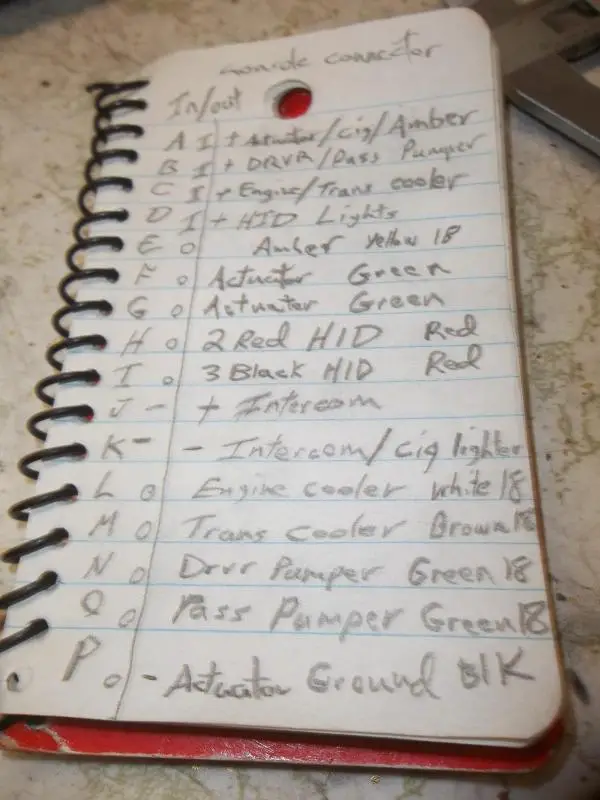 console connector
In/out
A I + Actuator/cig/Amber
B I + DRVR/Pass Pumper
C I + Engine/Trans cooler
D I + HID Lights
E o Amber yellow 18
F o Actuator Green
G o Actuator Green
H o 2 Red HID Red
I o 3 Black HID Red
J - + Intercom
K - - Intercom/cig lighter
L o Engine cooler white 18
M o Trans cooler Brown 18
N o Drvr Pumper Green 18
O o Pass Pumper Green 18
P o - Actuator Ground Blk